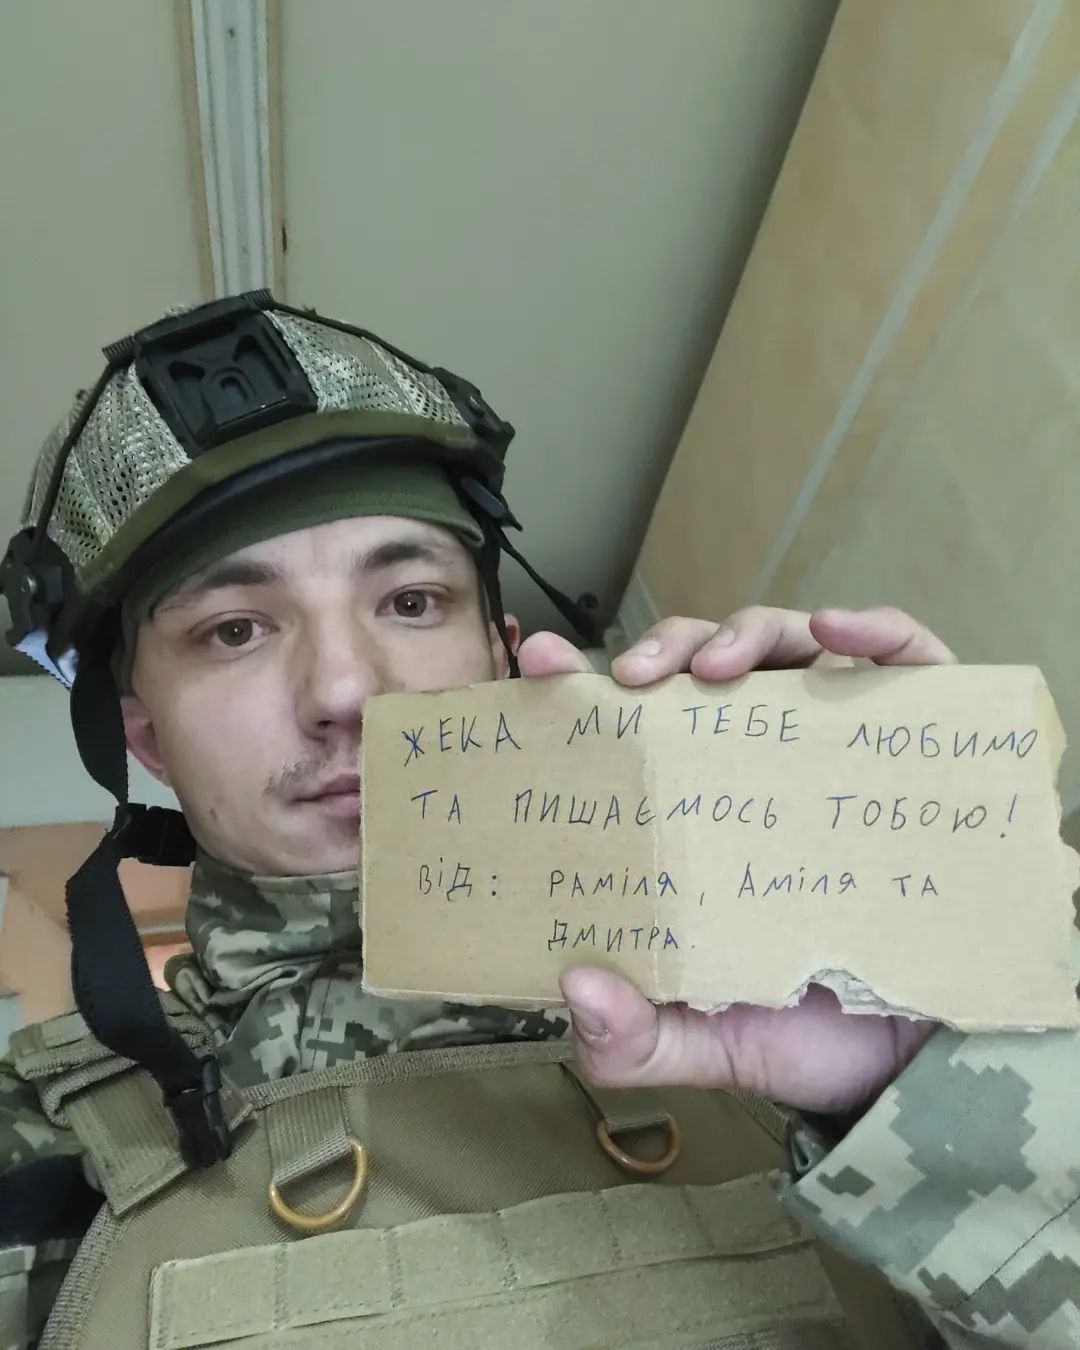 ЖЕКА МИ ТЕБЕ ЛЮБИМО
ТА ПИШАЄМОСЬ ТОБОЮ!
ВіД: РАМіЛЯ, АМіЛЯ ТА
ДМИТРА.